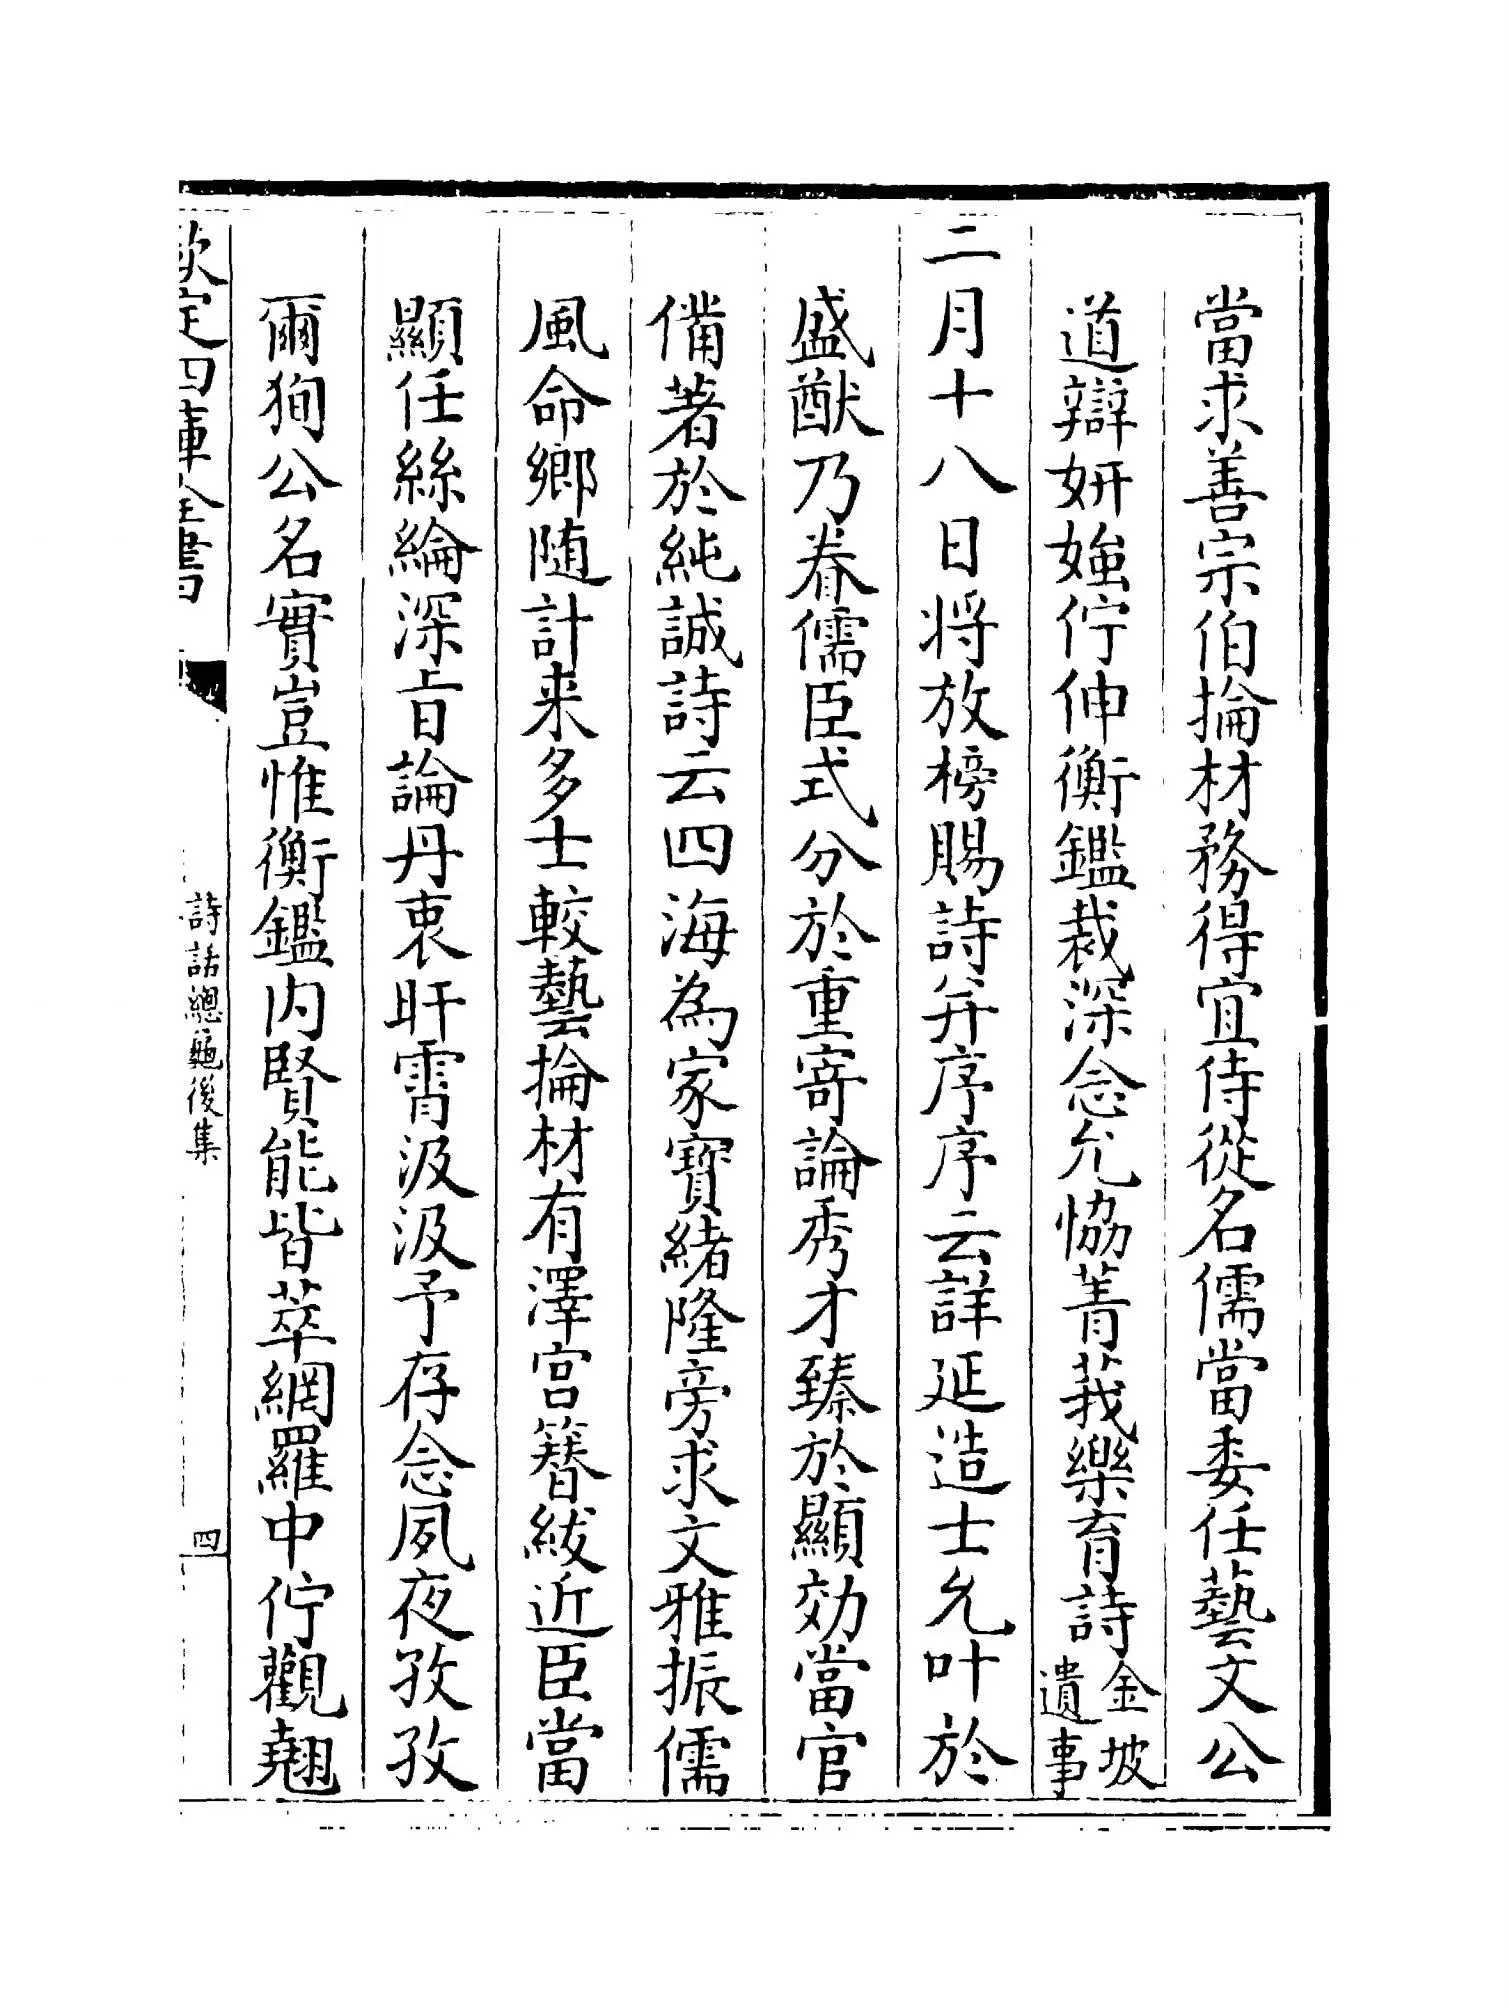 當求善宗伯掄材務得宜侍從名儒當委任藝文公
道辯妍媸佇伸衡鑑裁深念允恊菁莪樂育詩金坡遺事
二月十八日將放榜賜詩并序序云詳延造士允叶於
盛猷乃眷儒臣式分於重寄論秀才臻於顯効當官
備著於純誠詩云四海為家寶緒隆旁求文雅振儒
風命鄉随計来多士較藝掄材有澤宫簪紱近臣當
顯任絲綸深㫖論丹衷旰霄汲汲予存念夙夜孜孜
爾狥公名實豈惟衡鑑内賢能皆萃網羅中佇觀翹
欽定四庫全書
詩話總龜後集
四